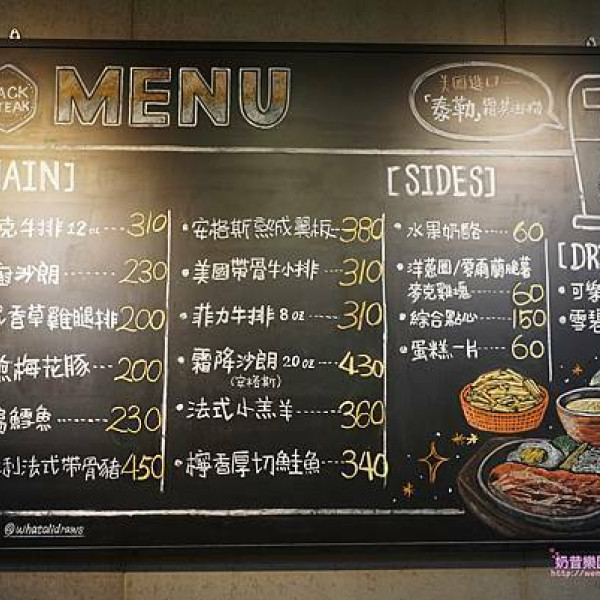 ACK
TEAK
MENU
美國進口
「泰勒」霜淇淋機
AIN]
克牛排 12 oz 310
沙朗 230
香草雞腿排 200
梅花豚 200
鱈魚 230
利法式帶骨豬 450
@whatalidraws
·安格斯熟成翼板 380
·美國帶骨牛小排 310
·菲力牛排 8 oz 310
·霜降沙朗 20 oz 430
(安格斯)
·法式小羔羊 360
·檸香厚切鮭魚 340
[SIDES]
·水果奶酪 60
·洋蔥圈/愛爾蘭脆薯
麥克雞塊 60
·綜合點心 150
·蛋糕一片 60
[DR
·可樂
·雪碧
奶昔樂
http://wen